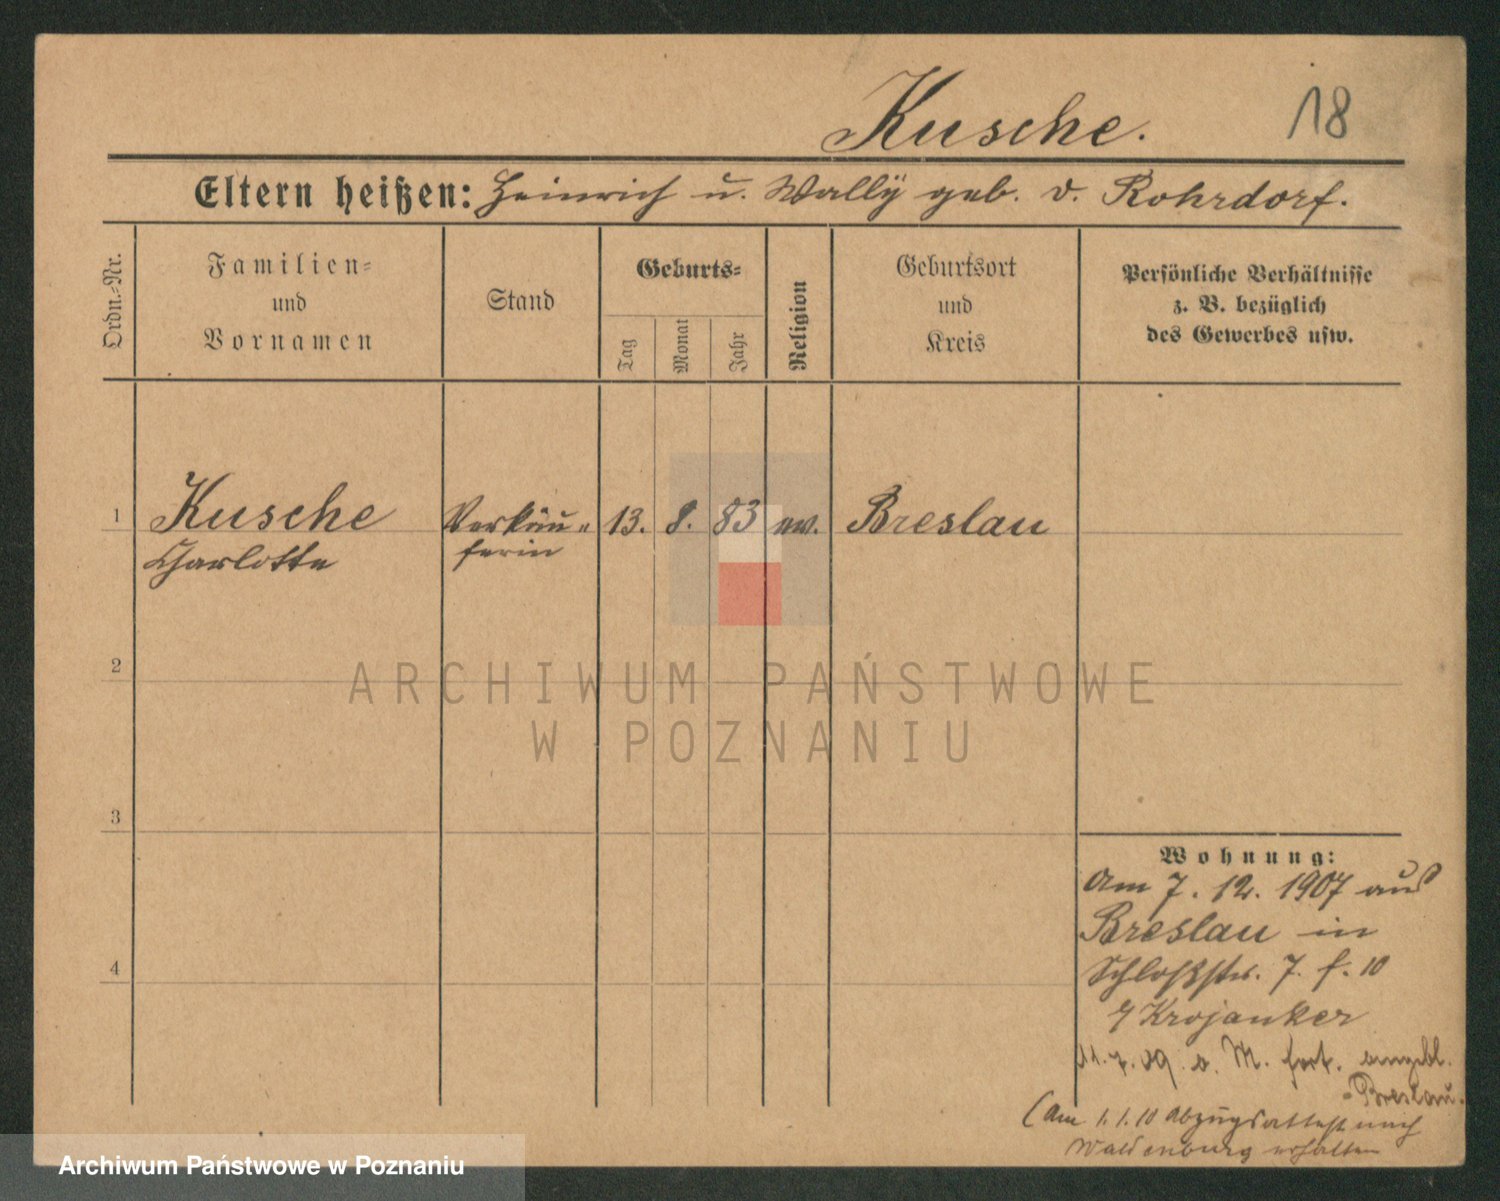 Kusche.
18
Eltern heißen: Heinrich u. Wally geb. v. Rohrdorf.
Ordn.-Nr.
Familien-
und
Vornamen
Stand
Geburts-
Tag
Monat
Jahr
Religion
Geburtsort
und
Kreis
Persönliche Verhältnisse
z. B. bezüglich
des Gewerbes usw.
1 Kusche Verkäu- 13. 8. 83 ev. Breslau
Charlotte ferin
2
ARCHIWUM PAŃSTWOWE
W POZNANIU
3
Wohnung:
Am 7. 12. 1907 aus
Breslau in
4
Schloßstr. 7. f. 10
Krojanker
11. 7. 09 o. M. fort. angebl.
Breslau.
(Am 1.1.10 Abzugsattest nach
Waldenburg erhalten
Archiwum Państwowe w Poznaniu